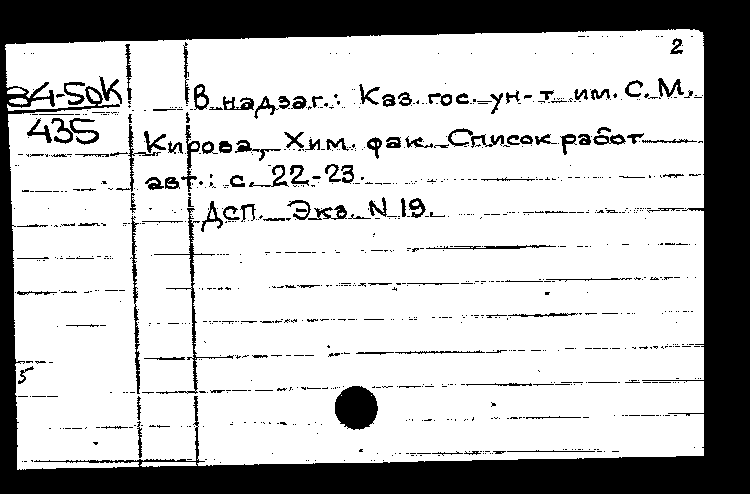 2
84-50К
435
В надзаг.: Каз. гос. ун-т им. С. М.
Кирова, Хим. фак. Список работ
авт.: с. 22-23.
ДСП. Экз. N 19.
5